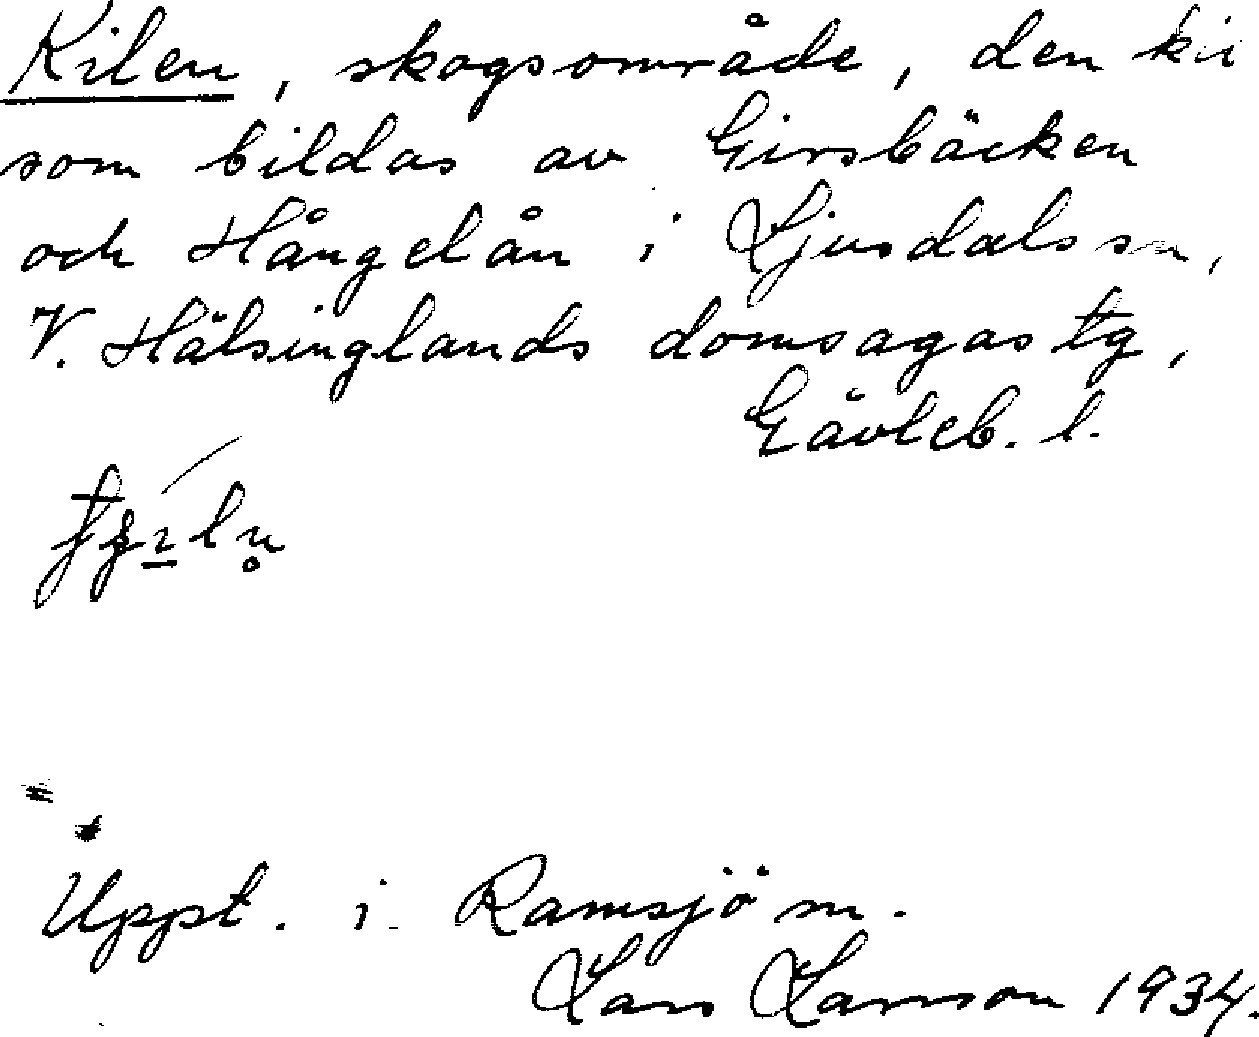 Kilen, skogsområde, den kil
som bildas av Girsbäcken
och Hångelån i Ljusdals sn,
V. Hälsinglands domsagas tg,
Gävleb. l.
Uppt. i Ramsjö sn.
Lars Larsson 1934.